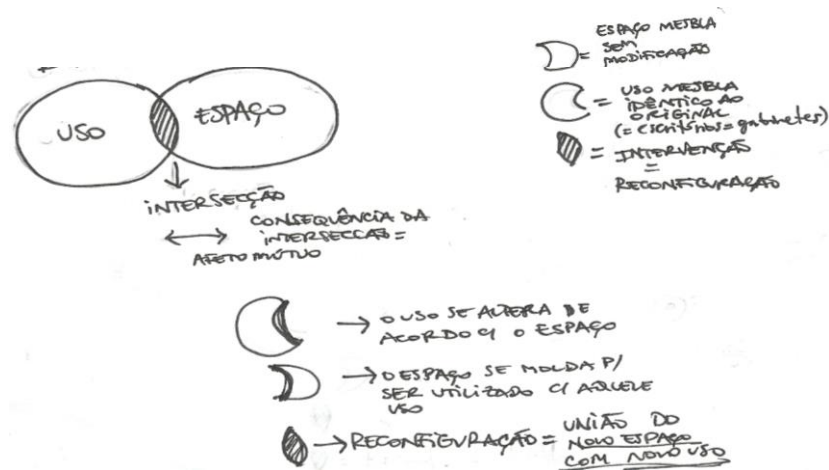 USO
ESPAÇO
INTERSECÇÃO
CONSEQUÊNCIA DA
INTERSECCÃO =
AFETO MÚTUO
ESPAÇO MESBLA
= SEM
MODIFICAÇÃO
= USO MESBLA
IDÊNTICO AO
ORIGINAL
(= escritórios = gabinetes)
= INTERVENÇÃO
=
RECONFIGURAÇÃO
→ O USO SE ALTERA DE
ACORDO C/ O ESPAÇO
→ O ESPAÇO SE MOLDA P/
SER UTILIZADO C/ AQUELE
USO
→ RECONFIGURAÇÃO = UNIÃO DO
NOVO ESPAÇO
COM NOVO USO